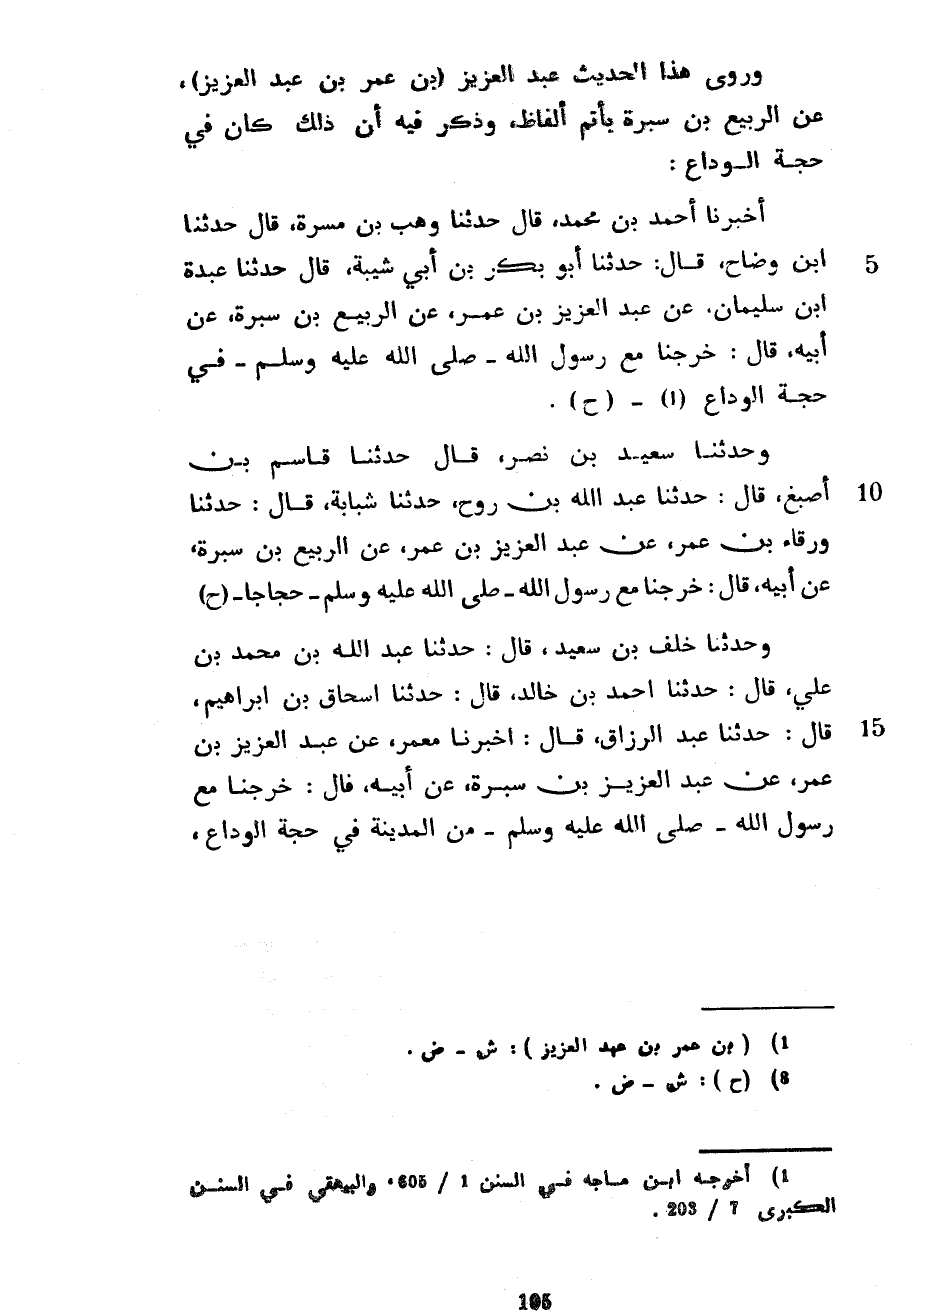 وروى هذا الحديث عبد العزيز (بن عمر بن عبد العزيز)،
عن الربيع بن سبرة بأتم ألفاظ، وذكر فيه أن ذلك كان في
حجة الوداع :
أخبرنا أحمد بن محمد، قال حدثنا وهب بن مسرة، قال حدثنا
5 ابن وضاح، قال: حدثنا أبو بكر بن أبي شيبة، قال حدثنا عبدة
ابن سليمان. عن عبد العزيز بن عمر، عن الربيع بن سبرة، عن
أبيه، قال : خرجنا مع رسول الله - صلى الله عليه وسلم - في
حجة الوداع (1) - (ح) .
وحدثنا سعيد بن نصر، قال حدثنا قاسم بن
10 أصبغ، قال : حدثنا عبد الله بن روح، حدثنا شبابة، قال : حدثنا
ورقاء بن عمر، عن عبد العزيز بن عمر، عن الربيع بن سبرة،
عن أبيه، قال : خرجنا مع رسول الله - صلى الله عليه وسلم - حجاجا - (ح)
وحدثنا خلف بن سعيد ، قال : حدثنا عبد الله بن محمد بن
علي، قال : حدثنا احمد بن خالد، قال : حدثنا اسحاق بن ابراهيم،
15 قال : حدثنا عبد الرزاق، قال : اخبرنا معمر، عن عبد العزيز بن
عمر، عن عبد العزيز بن سبرة، عن أبيه، فال : خرجنا مع
رسول الله - صلى الله عليه وسلم - من المدينة في حجة الوداع ،
1) ( بن عمر بن عبد العزيز ) : ش - ض .
8) (ح ) : ش - ض .
1) أخرجه ابن ماجه في السنن 1 / 605، والبيهقي في السنن
الكبرى 7 / 203 .
105